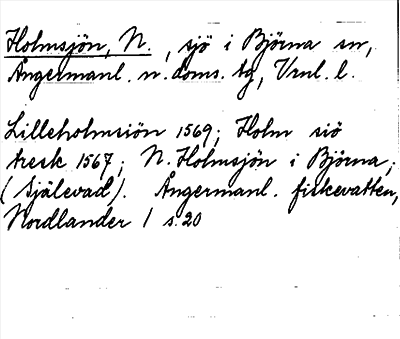 Holmsjön, N. , sjö i Björna sn,
Ångermanl. n. doms. tg, Vrnl. l.
Lilleholmsiön 1569; Holm siö
tresk 1567; N. Holmsjön i Björna;
(Själevad). Ångermanl. fiskevatten,
Nordlander 1 s. 20